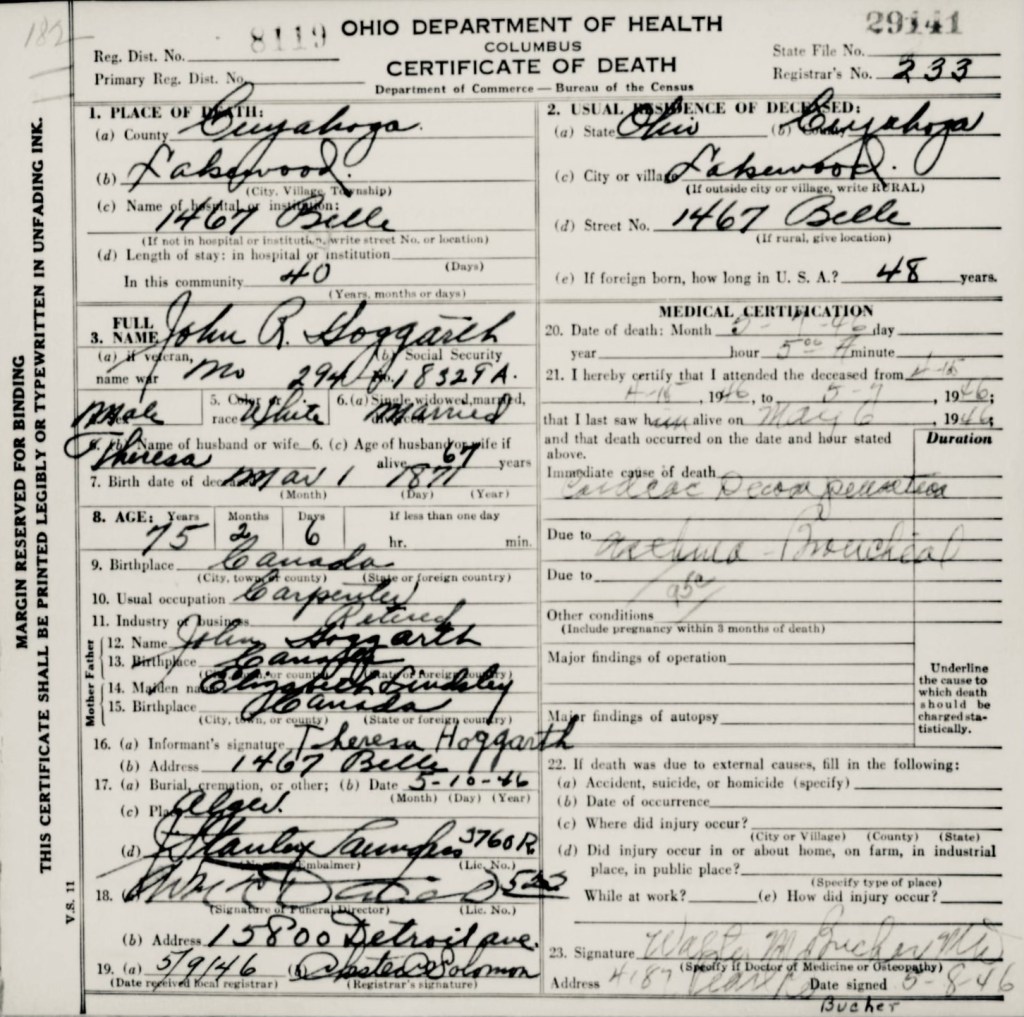 182
8119
OHIO DEPARTMENT OF HEALTH
29141
Reg. Dist. No.
COLUMBUS
State File No.
Primary Reg. Dist. No.
CERTIFICATE OF DEATH
Registrar's No. 233
Department of Commerce — Bureau of the Census
MARGIN RESERVED FOR BINDING
THIS CERTIFICATE SHALL BE PRINTED LEGIBLY OR TYPEWRITTEN IN UNFADING INK.
V.S. 11
1. PLACE OF DEATH:
(a) County Cuyahoga
(b) Lakewood.
(City, Village, Township)
(c) Name of hospital or institution:
1467 Belle
(If not in hospital or institution, write street No. or location)
(d) Length of stay: in hospital or institution
(Days)
In this community 40
(Years, months or days)
2. USUAL RESIDENCE OF DECEASED:
(a) State Ohio (b) County Cuyahoga
(c) City or village Lakewood.
(If outside city or village, write RURAL)
(d) Street No. 1467 Belle
(If rural, give location)
(e) If foreign born, how long in U. S. A.? 48 years.
3. FULL NAME John R. Hoggarth
(a) If veteran, name war No
(b) Social Security No. 294 18329A.
Male 5. Color or race White 6. (a) Single, widowed, married, divorced Married
6. (b) Name of husband or wife Theresa 6. (c) Age of husband or wife if alive 67 years
7. Birth date of deceased Mar 1 1871
(Month) (Day) (Year)
8. AGE: Years 75 Months 2 Days 6 If less than one day
hr. min.
9. Birthplace Canada
(City, town, or county) (State or foreign country)
10. Usual occupation Carpenter
11. Industry or business Retired
Father
12. Name John Hoggarth
13. Birthplace Canada
(City, town, or county) (State or foreign country)
Mother
14. Maiden name Elizabeth Lindsley
15. Birthplace Canada
(City, town, or county) (State or foreign country)
16. (a) Informant's signature Theresa Hoggarth
(b) Address 1467 Belle
17. (a) Burial, cremation, or other; (b) Date 5-10-46
(Month) (Day) (Year)
(c) Place Alger.
(d) J Stanley Saunders 3760R
(Name of Embalmer) (Lic. No.)
18. 522
(Signature of Funeral Director) (Lic. No.)
(b) Address 15800 Detroit ave.
19. (a) 5/9/46 (b) Solomon
(Date received local registrar) (Registrar's signature)
MEDICAL CERTIFICATION
20. Date of death: Month 5-7-46 day
year hour 5 00 A minute
21. I hereby certify that I attended the deceased from 4-15
4-15, 1946, to 5-7, 1946;
that I last saw him alive on May 6, 1946
and that death occurred on the date and hour stated above.
Duration
Immediate cause of death
Cardiac Decompensation
Due to Asthma - Bronchial
Due to
95c
Other conditions
(Include pregnancy within 3 months of death)
Major findings of operation
Major findings of autopsy
Underline the cause to which death should be charged statistically.
22. If death was due to external causes, fill in the following:
(a) Accident, suicide, or homicide (specify)
(b) Date of occurrence
(c) Where did injury occur?
(City or Village) (County) (State)
(d) Did injury occur in or about home, on farm, in industrial place, in public place?
(Specify type of place)
While at work? (e) How did injury occur?
23. Signature Walter M Bucher MD
(Specify if Doctor of Medicine or Osteopathy)
Address 4187 Pearl Rd Date signed 5-8-46
Bucher